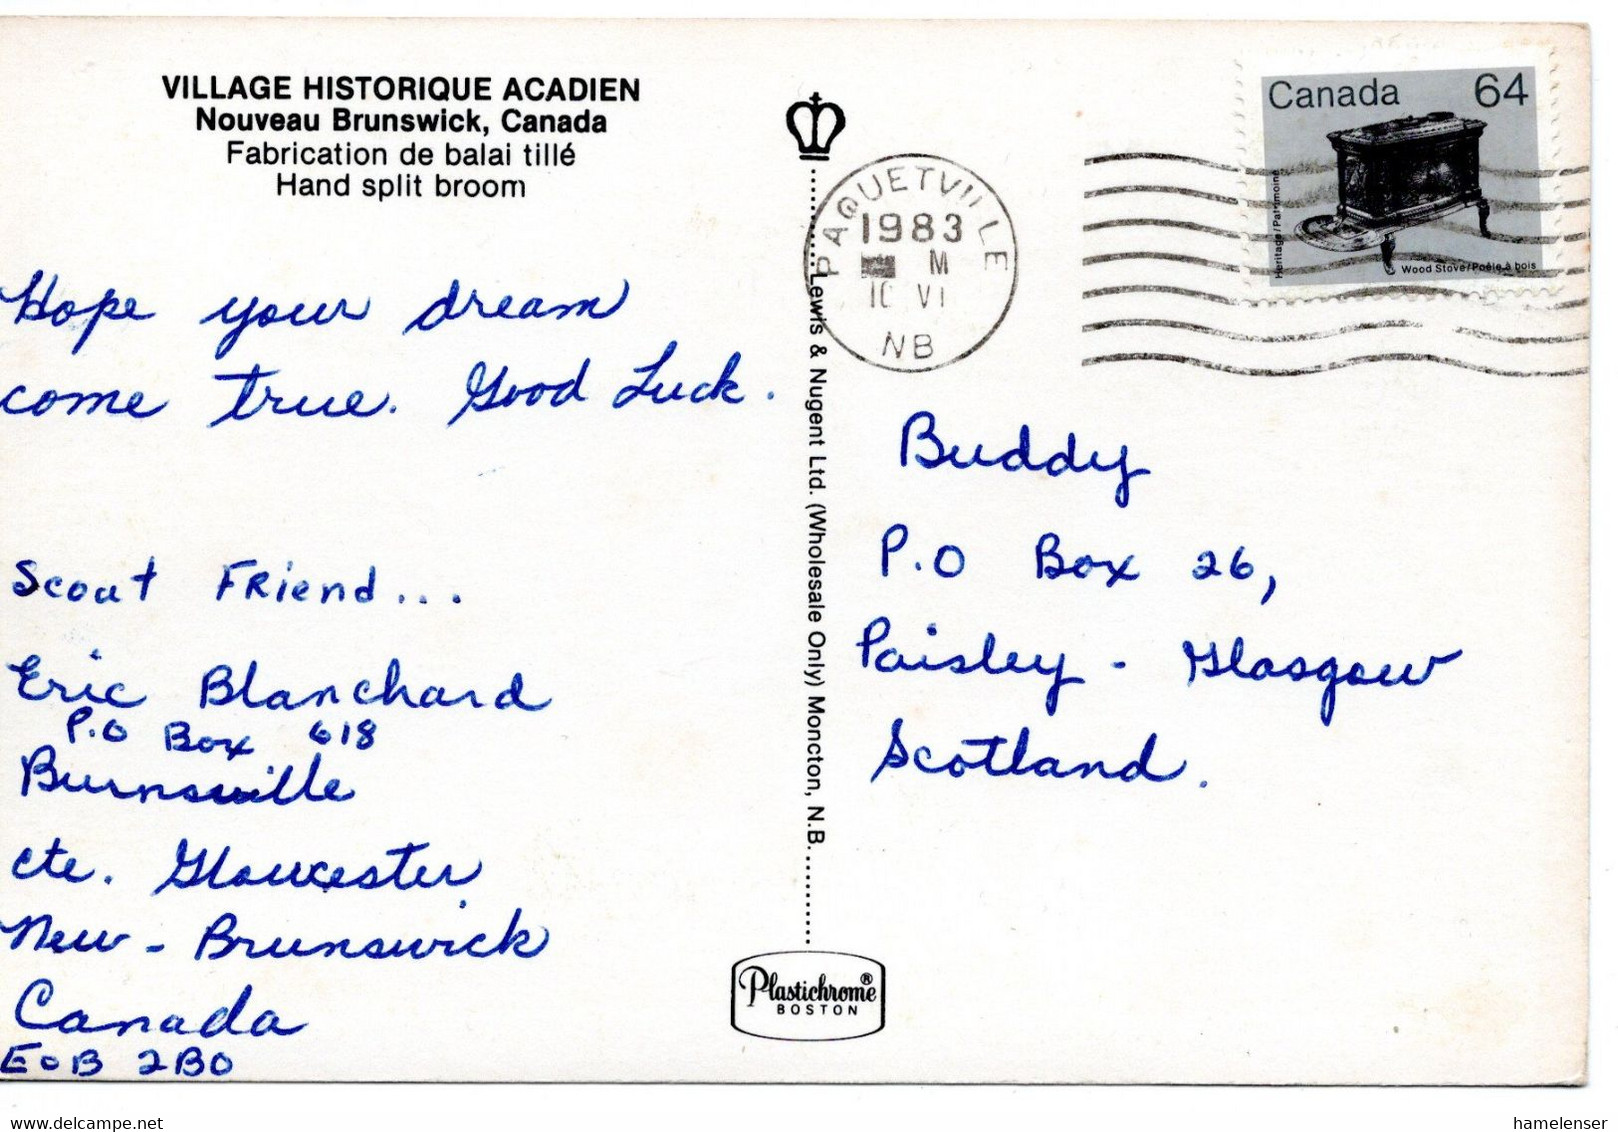 VILLAGE HISTORIQUE ACADIEN
Nouveau Brunswick, Canada
Fabrication de balai tillé
Hand split broom
Hope your dream
come true. Good Luck.
Scout Friend...
Eric Blanchard
P.O Box 618
Burnsville
cte. Gloucester
New-Brunswick
Canada
E0B 2B0
Lewis & Nugent Ltd. (Wholesale Only) Moncton, N.B.
Plastichrome®
BOSTON
PAQUETVILLE
1983
M
VI
NB
Canada 64
Heritage/Patrimoine
Wood Stove/Poêle à bois
Buddy
P.O Box 26,
Paisley - Glasgow
Scotland.
delcampe.net
hamelenser